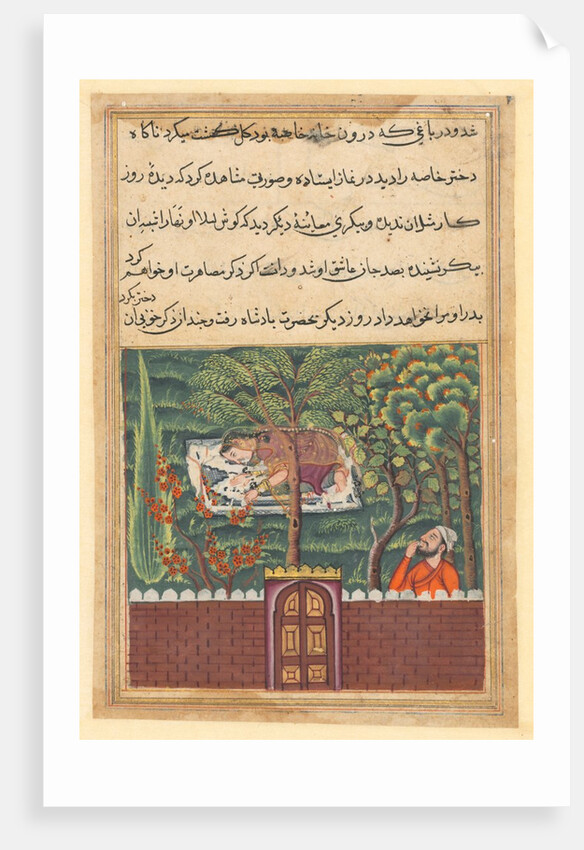 شد و در باغی که درون خانهٔ خاصه بود گل گشت میکرد ناگاه
دختر خاصه را دید در نماز ایستاده و صورتی مشاهده کرد که دیدهٔ روز
کار مثل آن ندیده و پیکری معاینهٔ دیگر دید که گوش لیلا و نهار شبه آن
نشنیده بصد جان عاشق او شد و دانست اگر ذکر مصاهرت او خواهم کرد
پدر او مرا نخواهد داد روز دیگر بحضرت بادشاه رفت و چند از ذکر خوبی آن
دختر بکرد